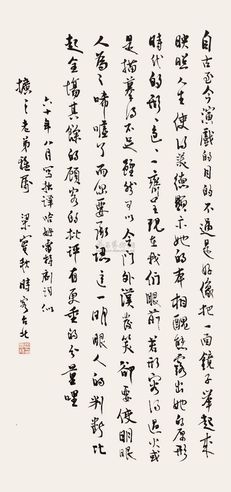 自古至今演戲的目的不過是好像把一面鏡子舉起來
映照人生使得美德顯示她的本相醜態露出她的原形
時代的形形色色一齊呈現在我們眼前若形容得過火或
是描摹得不足雖然可以令門外漢發笑卻要使明眼
人為之唏噓了而你要承認這一明眼人的判斷比
起全場其餘的顧客的批評有更重的分量哩
六十年八月寫拙譯哈姆雷特劇詞似
擴之老弟雅屬 梁實秋時客台北